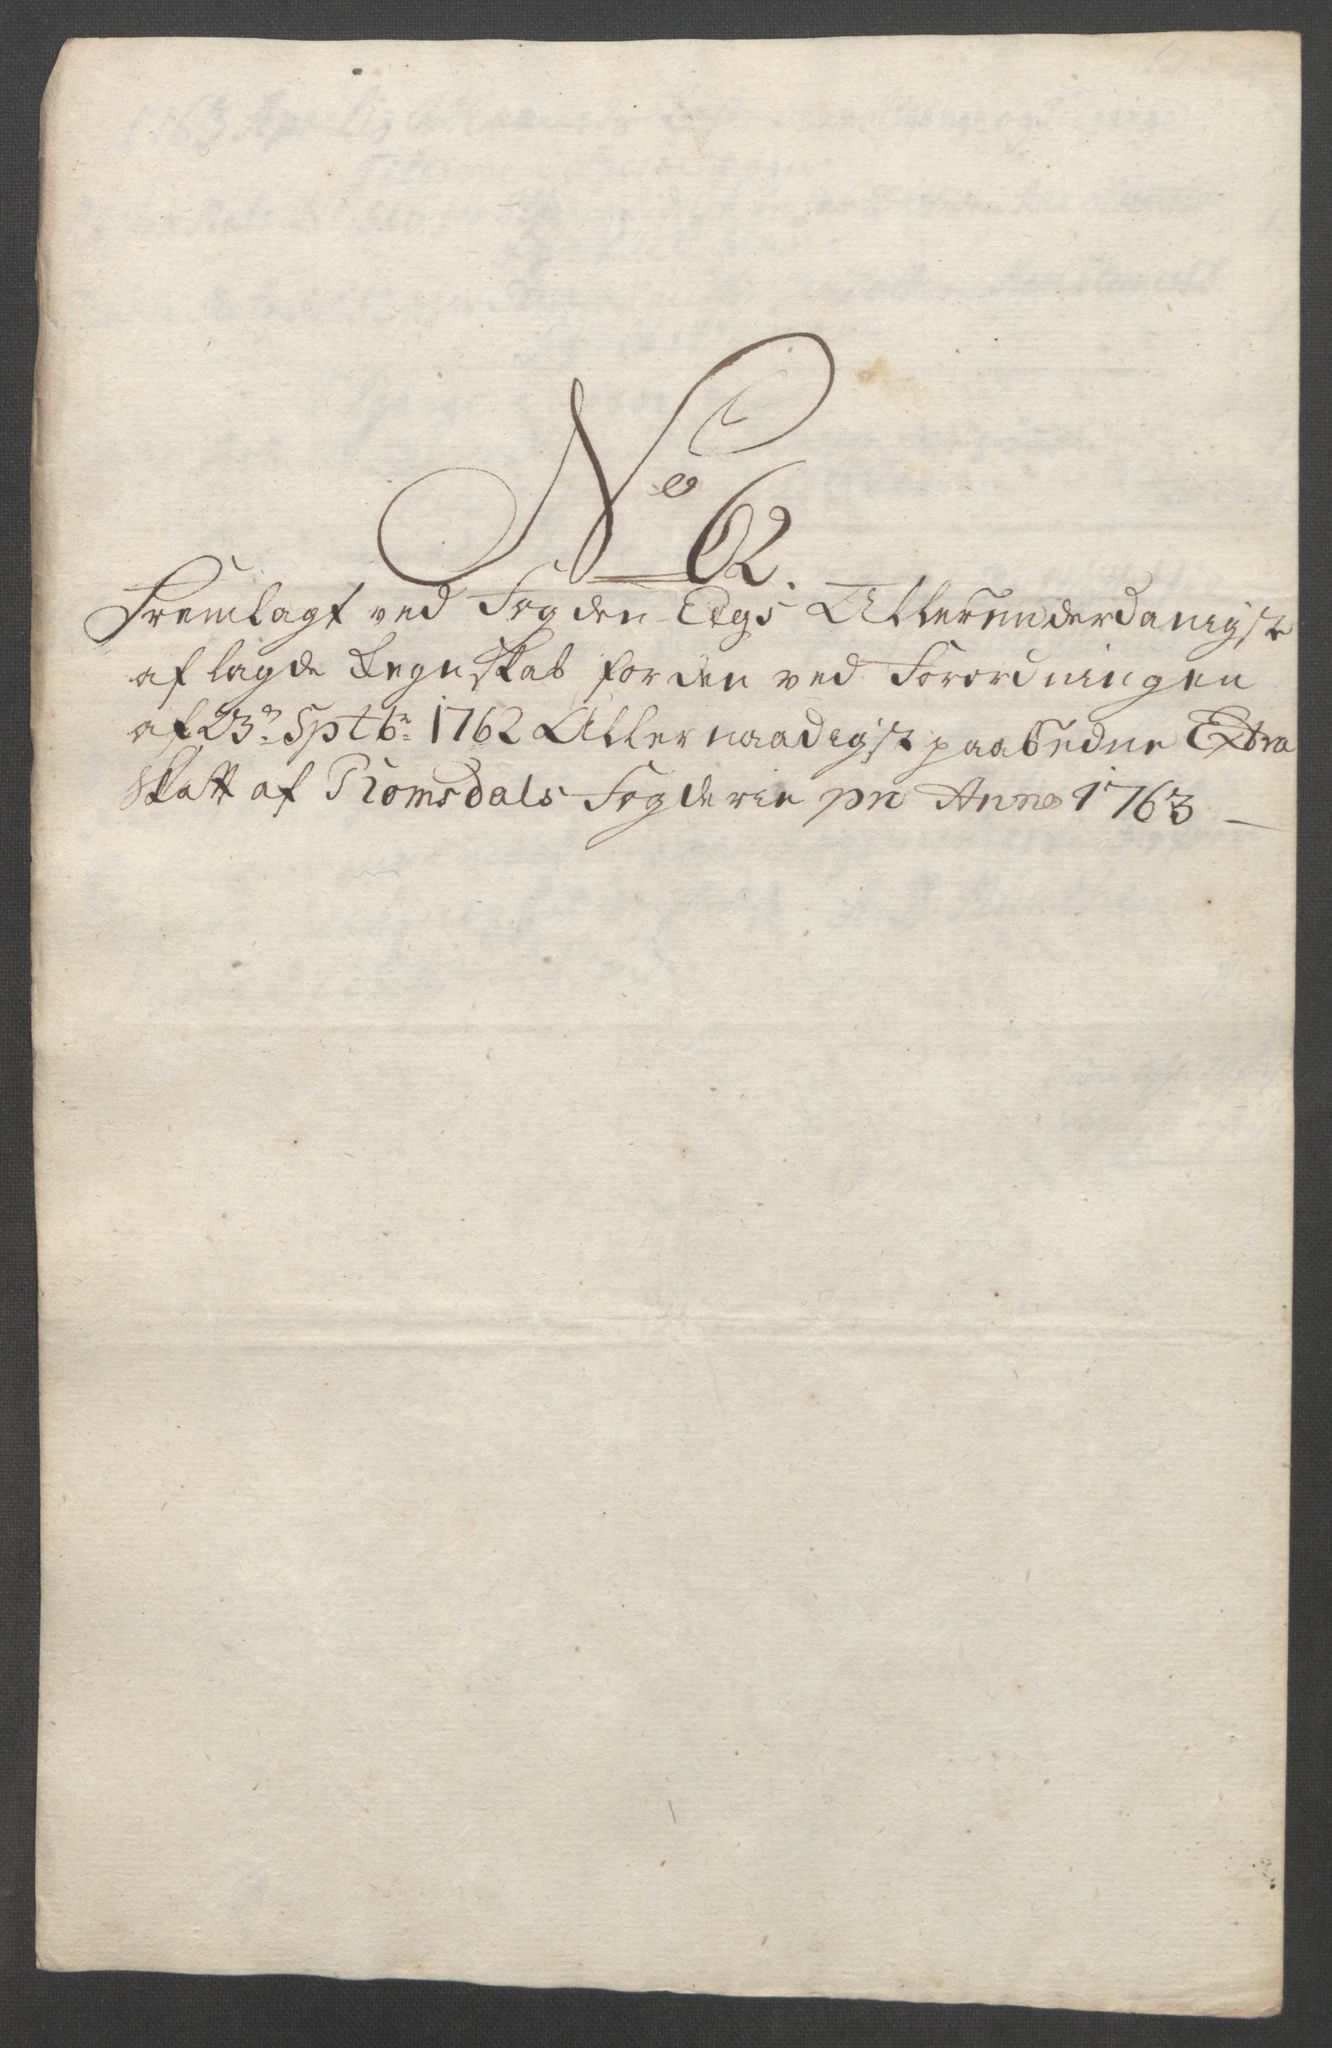 No 62.
Fremlagt ved Fogden Eegs Allerunderdanigst
aflagde Regnskab for den ved Forordningen
af 23de Sptbr 1762 Allernaadigst paabudne Extra
Skatt af Romsdals Fogderie pro Anno 1763